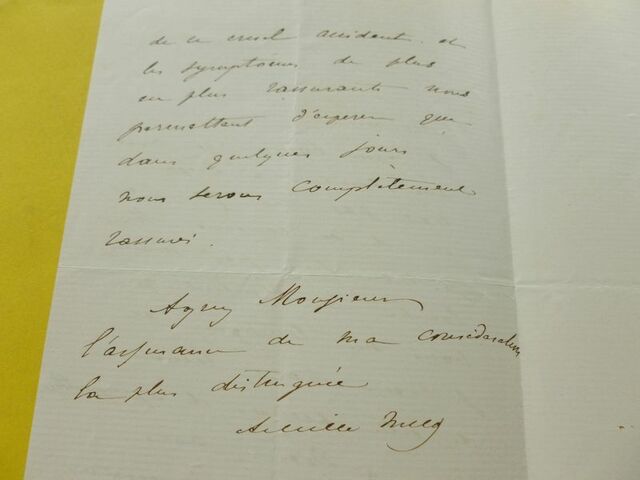 de ce cruel accident et
les symptômes de plus
en plus rassurants nous
permettent d'espérer que
dans quelques jours
nous serons complètement
rassurés.
Agréez Monsieur
l'assurance de ma considération
la plus distinguée
Achille